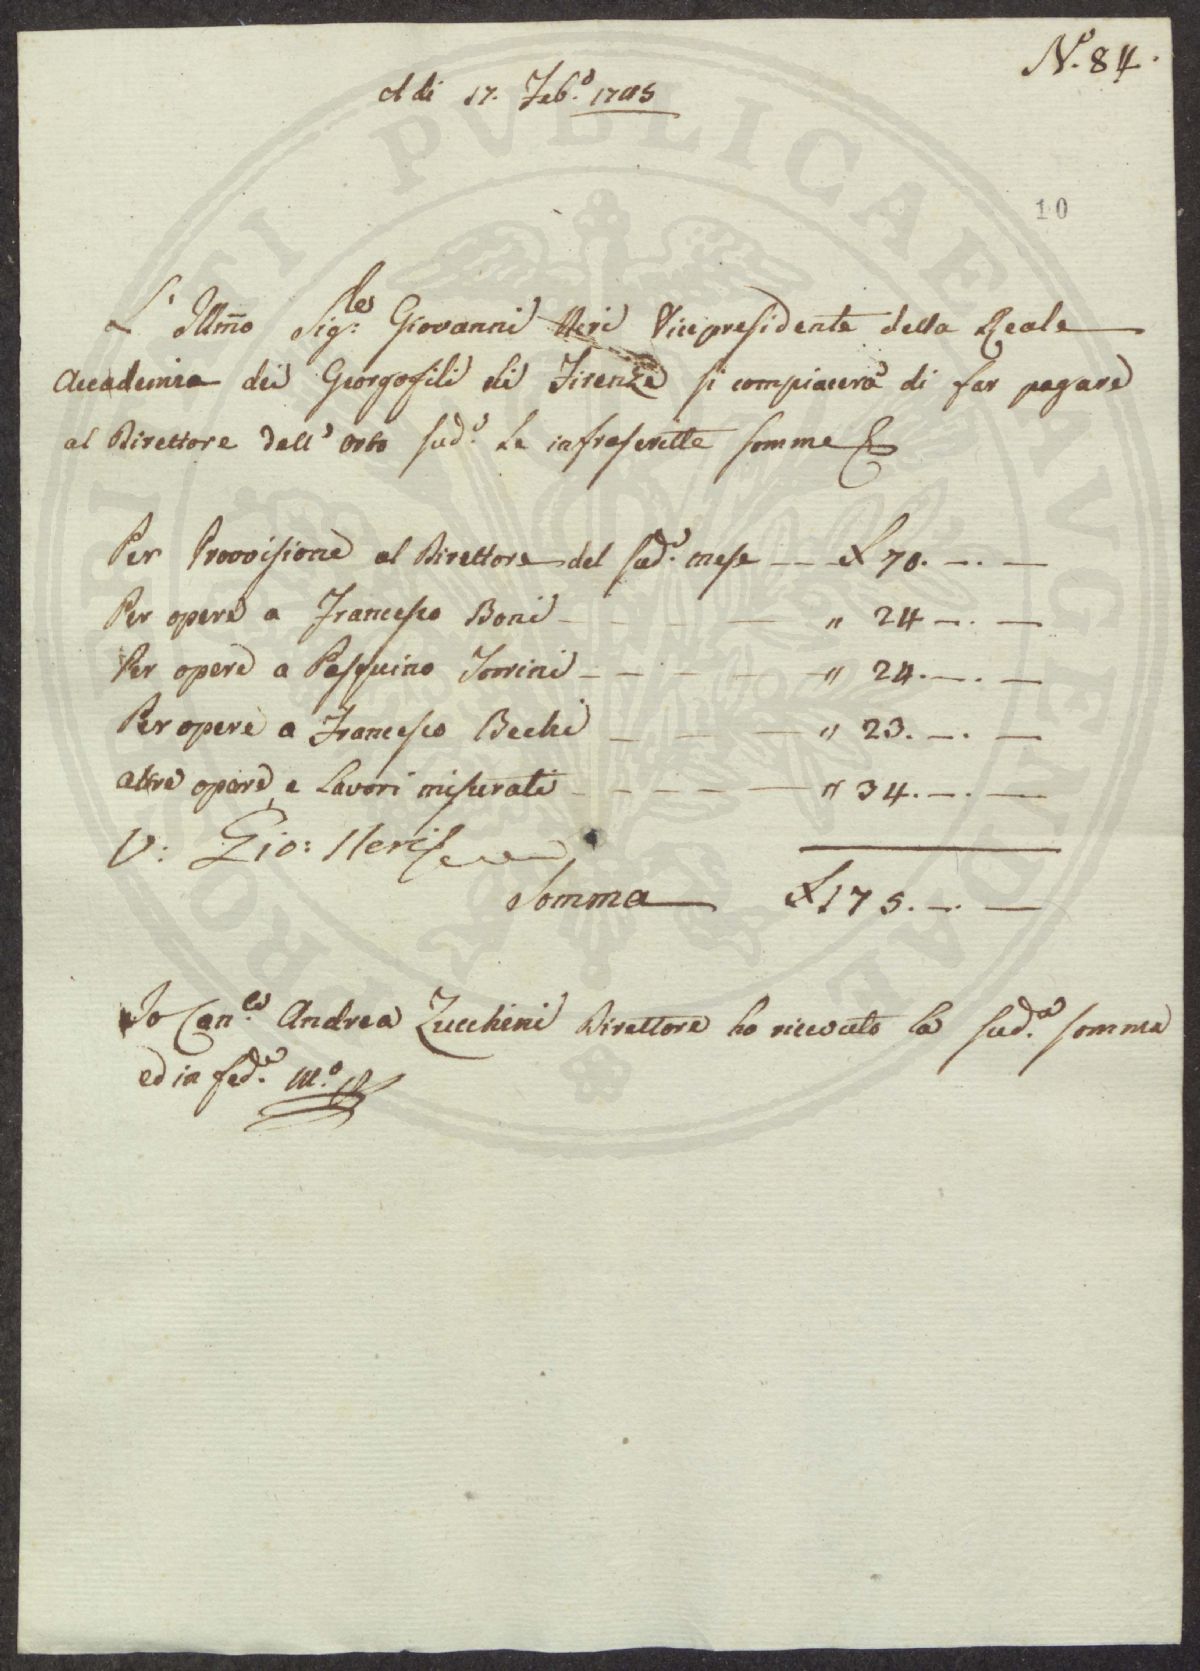 N.º 84.
A di 17. Feb.º 1785
10
L' Illmo Sig.re Giovanni Neri Vicepresidente della Reale
Accademia dei Georgofili di Firenze si compiacerà di far pagare
al Direttore dell' Orto sud.º le infrascritte somme
Per Provvisione al Direttore del sud.º mese — — £ 70. —. —
Per opere a Francesco Boni — — — — — " 24 —. —
Per opere a Pasquino Torrini — — — — — " 24. —. —
Per opere a Francesco Bechi — — — — " 23. —. —
altre opere, e Lavori misurati — — — — — " 34. —. —
V: Gio: Neri
Somma — £ 175. —. —
Io Can.co Andrea Zucchini Direttore ho ricevuto la sud.a somma
ed in fede M.º P